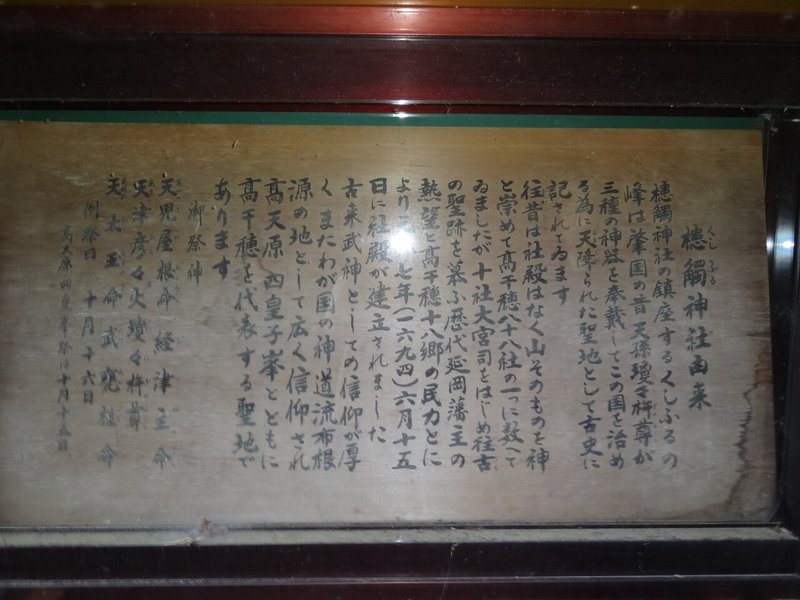 槵觸神社由来
くしふる
槵觸神社の鎮座するくしふるの
峰は肇国の昔天孫瓊々杵尊が
三種の神器を奉戴してこの国を治め
る為に天降られた聖地として古史に
記されてゐます
往昔は社殿はなく山そのものを神
と崇めて高千穂八十八社の一つに数へて
ゐましたが十社大宮司をはじめ往古
の聖跡を慕ふ歴代延岡藩主の
熱望と高千穂十八郷の民力とに
より 七年(一六九四)六月十五
日に社殿が建立されました
古来武神としての信仰が厚
くまたわが国の神道流布根
源の地として広く信仰され
高天原 四皇子峯とともに
高千穂を代表する聖地で
あります
御祭神
天児屋根命 経津主命
天津彦々火瓊々杵尊
天太玉命 武甕槌命
例祭日 十月十六日
高天原 四皇峯祭は十月十五日